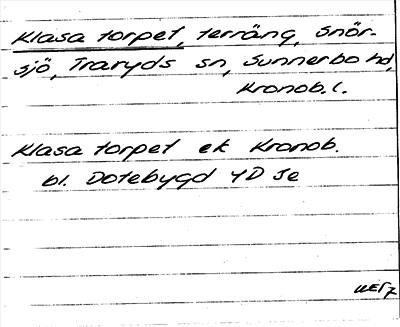 Klasa torpet, terräng, Snör-
sjö, Traryds sn, Sunnerbo hd,
Kronob. l.
Klasa torpet ek Kronob.
bl. Dotebygd 4D Se